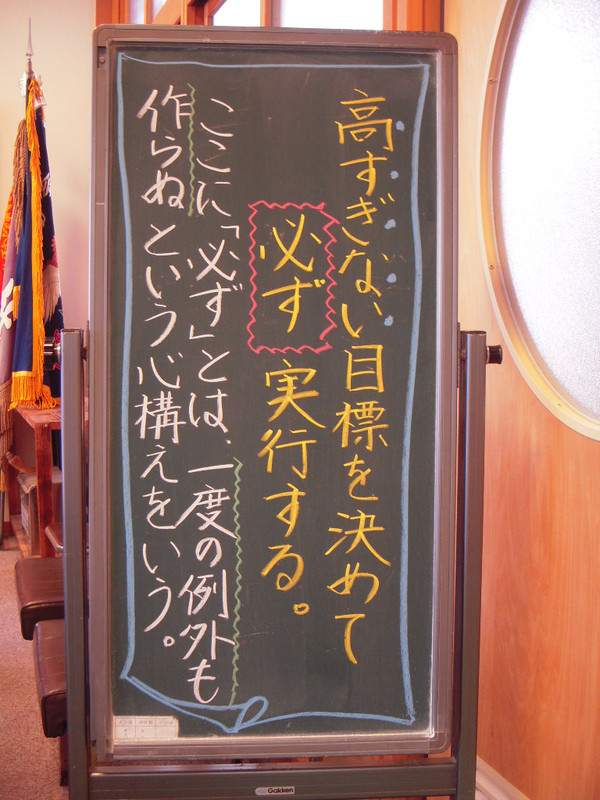 高すぎない目標を決めて
必ず 実行する。
ここに「必ず」とは、一度の例外も
作らぬという心構えをいう。
Gakken